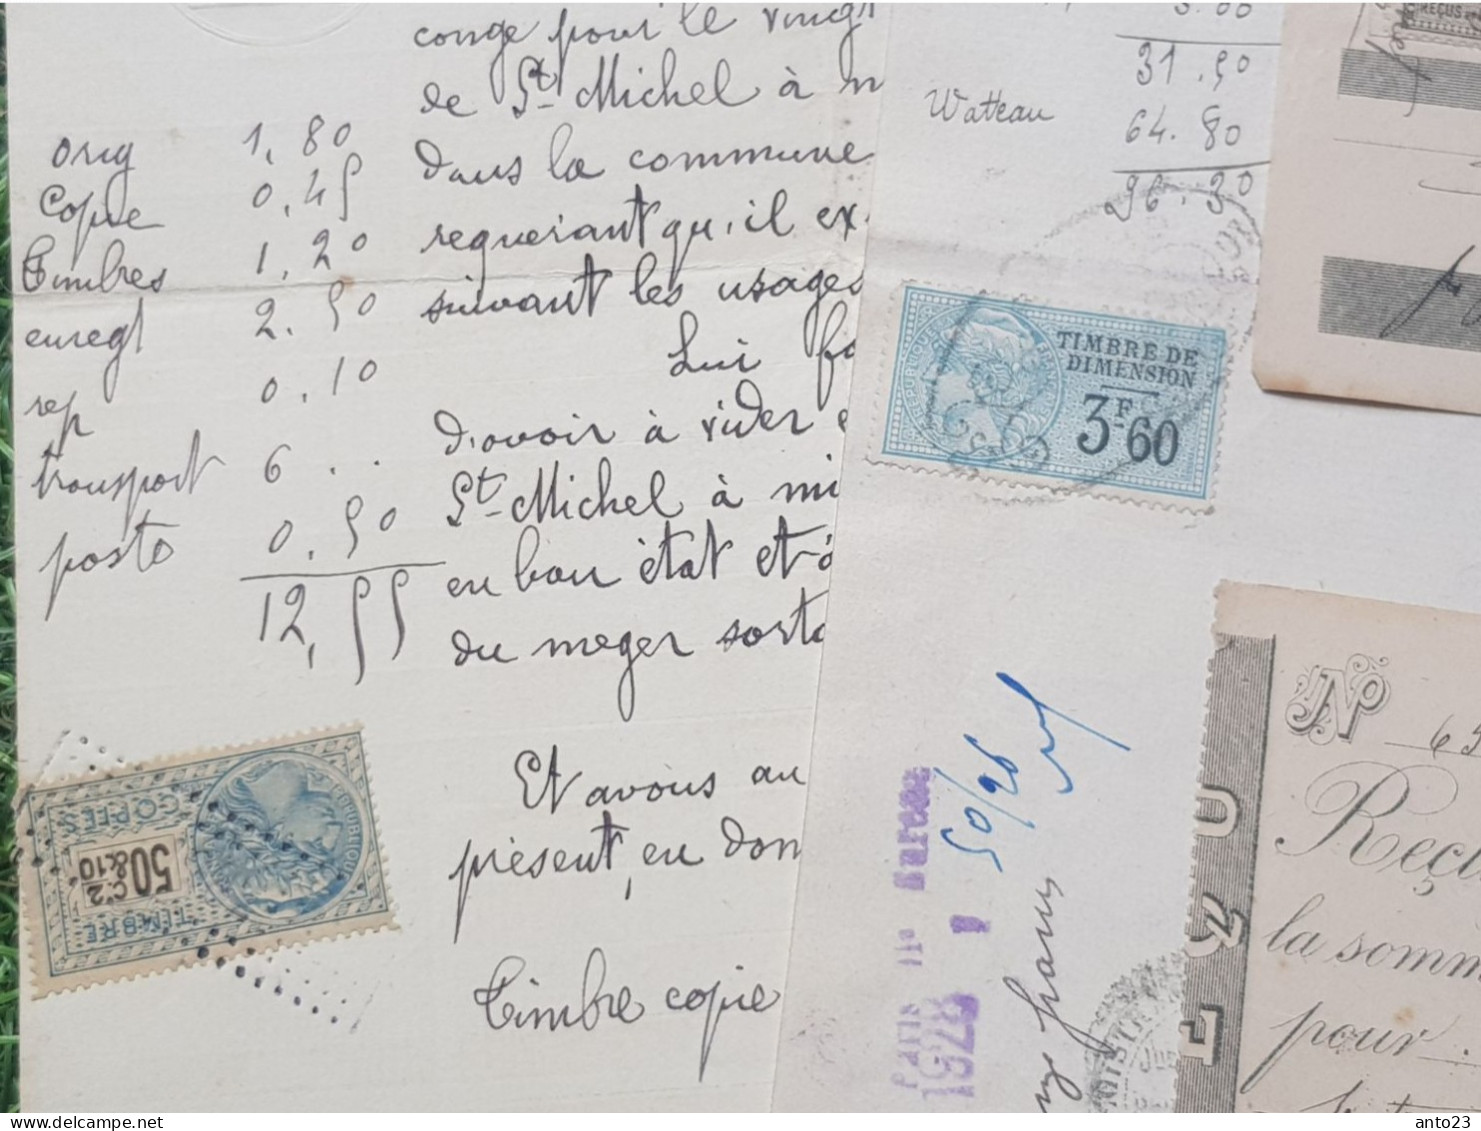 congé pour le vingt
de St Michel à m
dans la commune
requérant qu'il ex-
suivant les usages
Lui fa
d'avoir à vider e
St Michel à mi
en bon état et
du meger sorta
Et avons au
présent, en don
Timbre copie
orig 1,80
Copie 0,45
Timbres 1,20
enregt 2.50
rep 0,10
transport 6 . .
poste 0.50
12,55
COPIES
50
Cs 2
&10
TIMBRE
REPUBLIQUE
REÇUS
5.00
31.50
Watteau 64.80
96.30
TIMBRE DE
DIMENSION
3F60
REPUBLIQUE
50/26
Paris 11e Bureau
1928
Nº 65
Reçu
la somm
pour
anto23